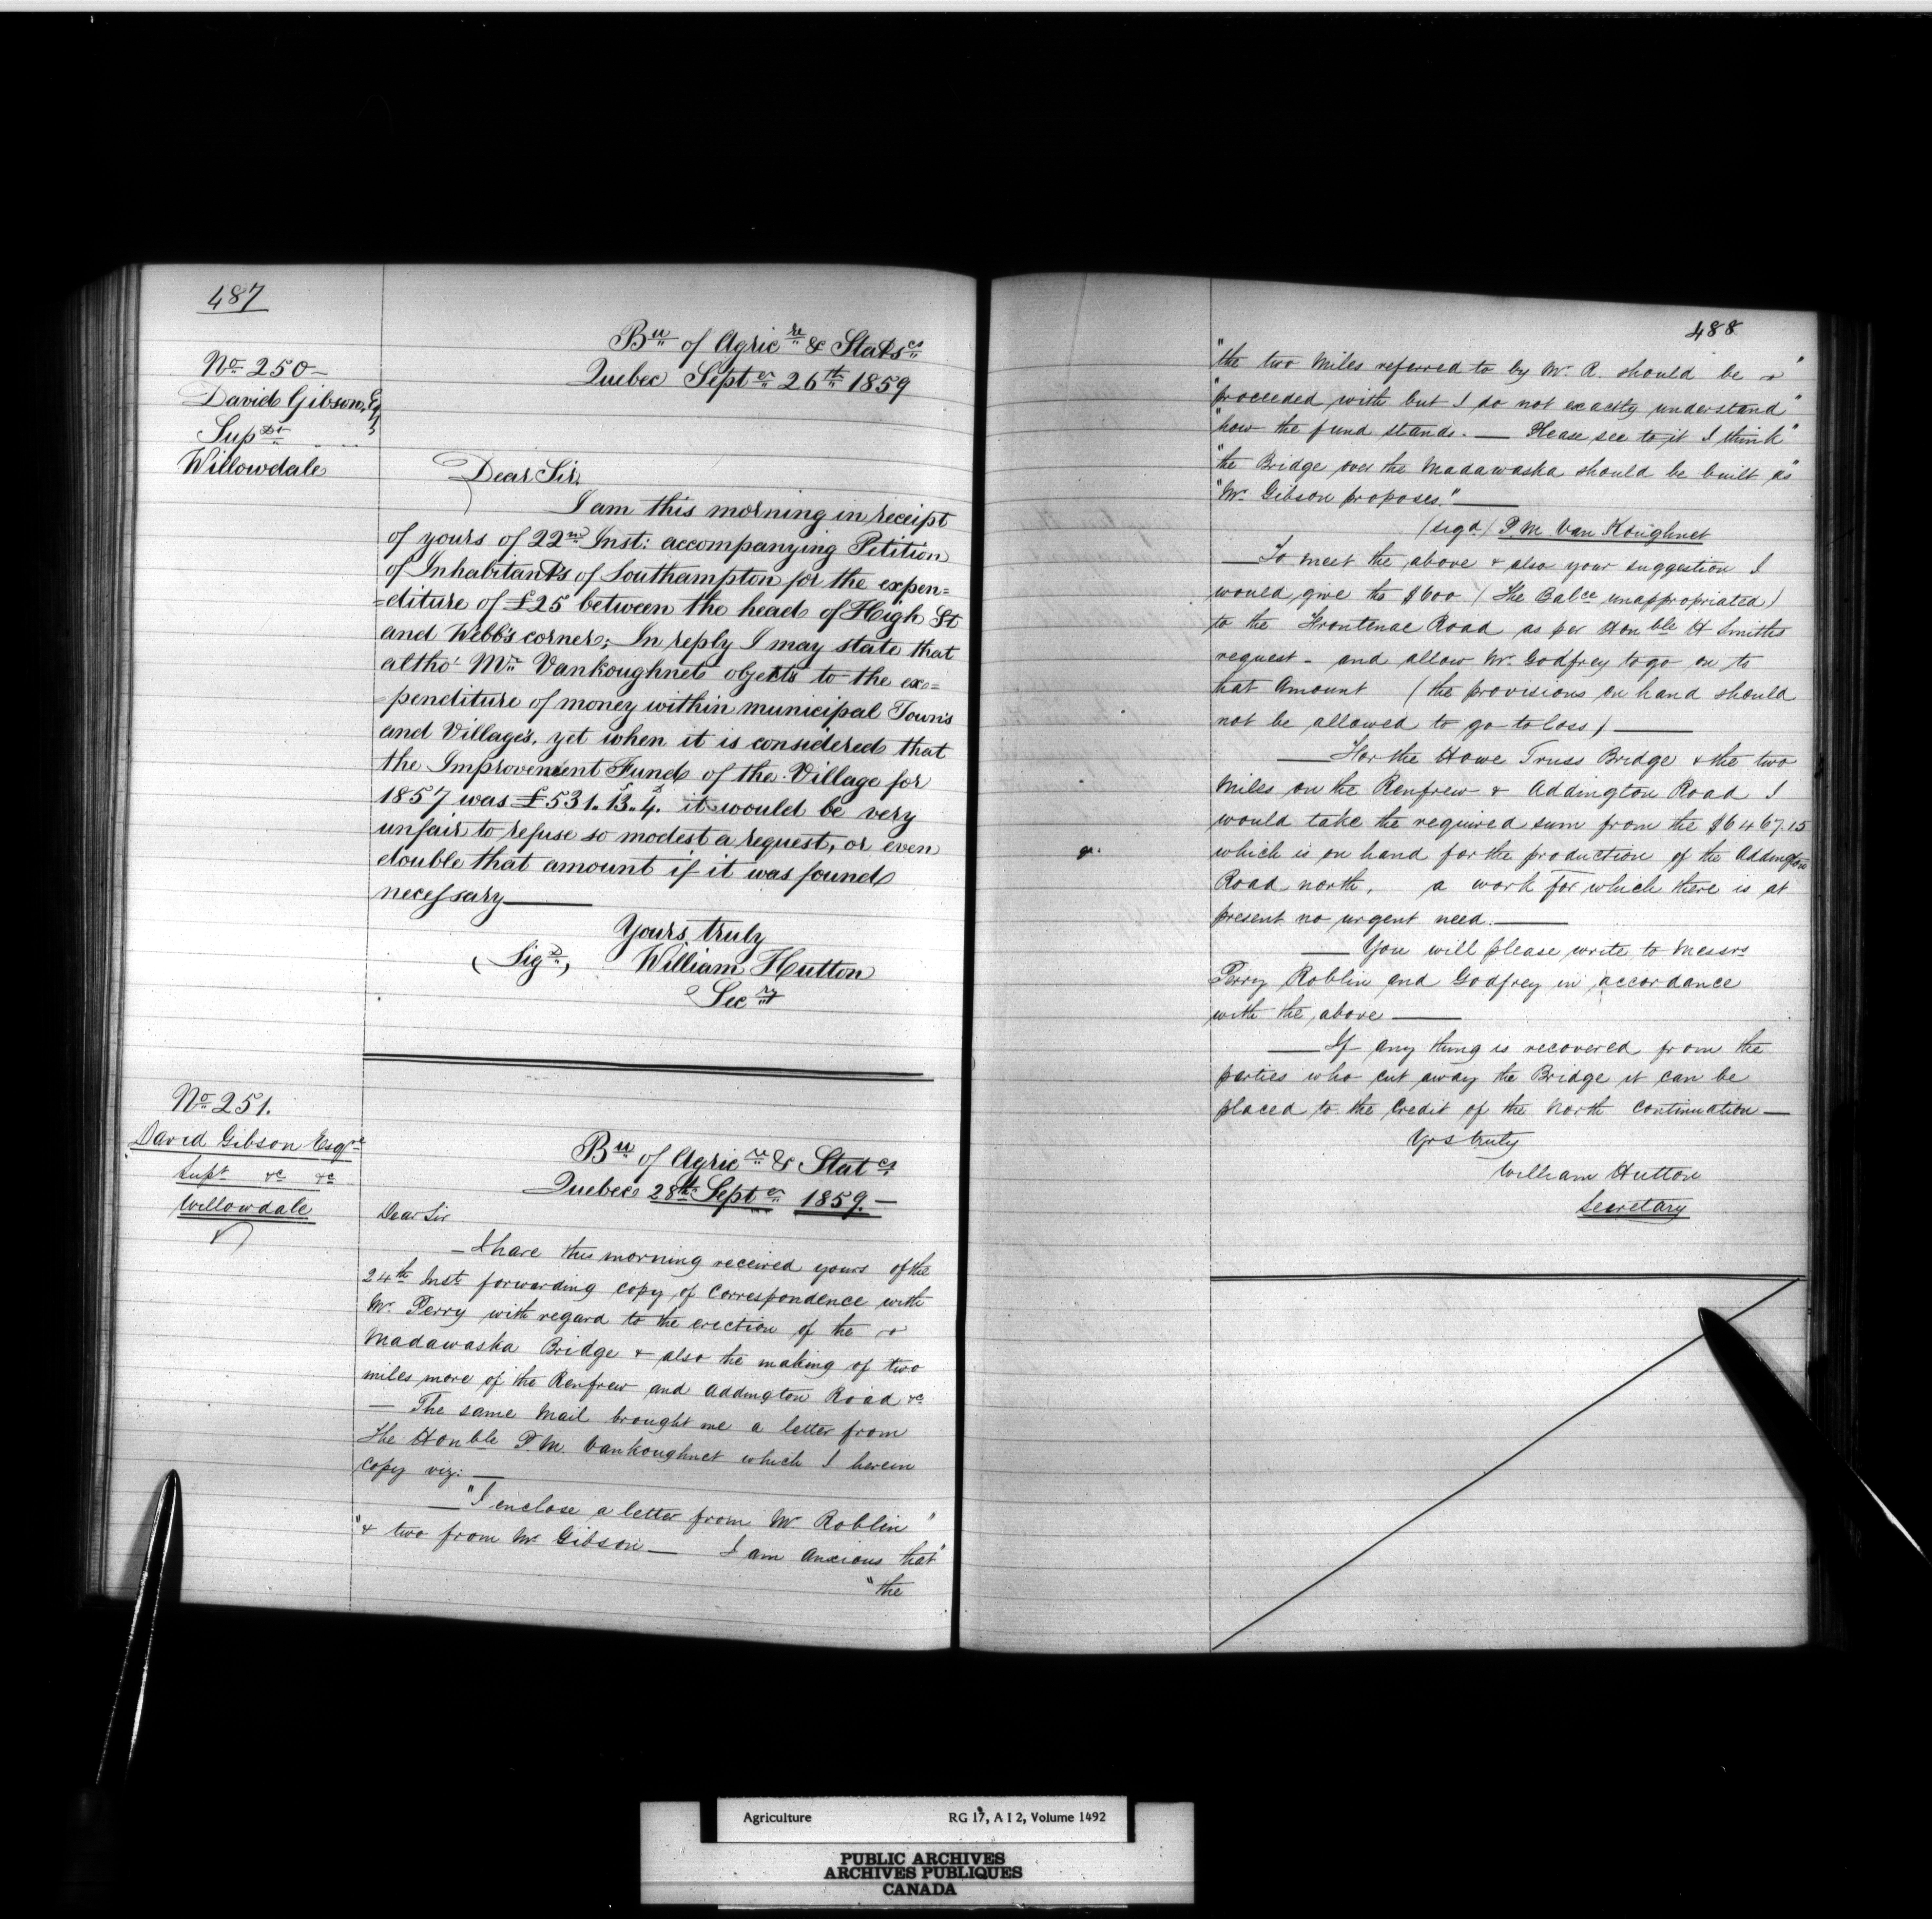 487
No 250-
David Gibson, Esq
Supdt
Willowdale
Bu of Agricre & Statscs
Quebec Septer 26th 1859
Dear Sir,
I am this morning in receipt
of yours of 22nd Inst: accompanying Petition
of Inhabitants of Southampton for the expen=
=diture of £25 between the head of High St
and Webb's corner; In reply I may state that
altho' Mr Vankoughnet objects to the ex=
=penditure of money within municipal Town's
and Village's, yet when it is considered that
the Improvement Fund of the Village for
1857 was £531..13..4. it would be very
unfair to refuse so modest a request, or even
double that amount if it was found
necessary——
Yours truly
(Sigd) William Hutton
Secry
No 251.
David Gibson Esqre
Supt &c &c
Willowdale
Bu of Agricre & Statcs
Quebec 28th Septer 1859.—
Dear Sir
—I have this morning received yours of the
24th Inst forwarding copy of Correspondence with
Mr. Perry with regard to the erection of the
Madawaska Bridge & also the making of two
miles more of the Renfrew and Addington Road &c
— The same Mail brought me a letter from
The Honble P.M. Vankoughnet which I herein
copy viz: —
—"I enclose a letter from Mr. Roblin"
"& two from Mr Gibson— I am anxious that"
"the
488
"the two Miles referred to by Mr. R. should be"
"proceeded with but I do not exactly understand"
"how the fund stands. — Please see to it I think"
"the Bridge over the Madawaska should be built as"
"Mr. Gibson proposes." ——
(sigd) P M Van Koughnet
—To meet the above & also your suggestion I
would give the $600 (The Balce unappropriated)
to the Frontenac Road as per Honble H Smiths
request - and allow Mr. Godfrey to go on to
that Amount (the provisions on hand should
not be allowed to go to loss) ——
—For the Howe Truss Bridge & the two
Miles on the Renfrew & Addington Road I
would take the required sum from the $6467.15
which is on hand for the production of the Addington
Road north, a work for which there is at
present no urgent need.——
—You will please write to Messrs
Perry Roblin and Godfrey in accordance
with the above ——
—If any thing is recovered from the
parties who cut away the Bridge it can be
placed to the Credit of the North Continuation—
Yrs truly
William Hutton
Secretary
Agriculture RG 17, A I 2, Volume 1492
PUBLIC ARCHIVES
ARCHIVES PUBLIQUES
CANADA